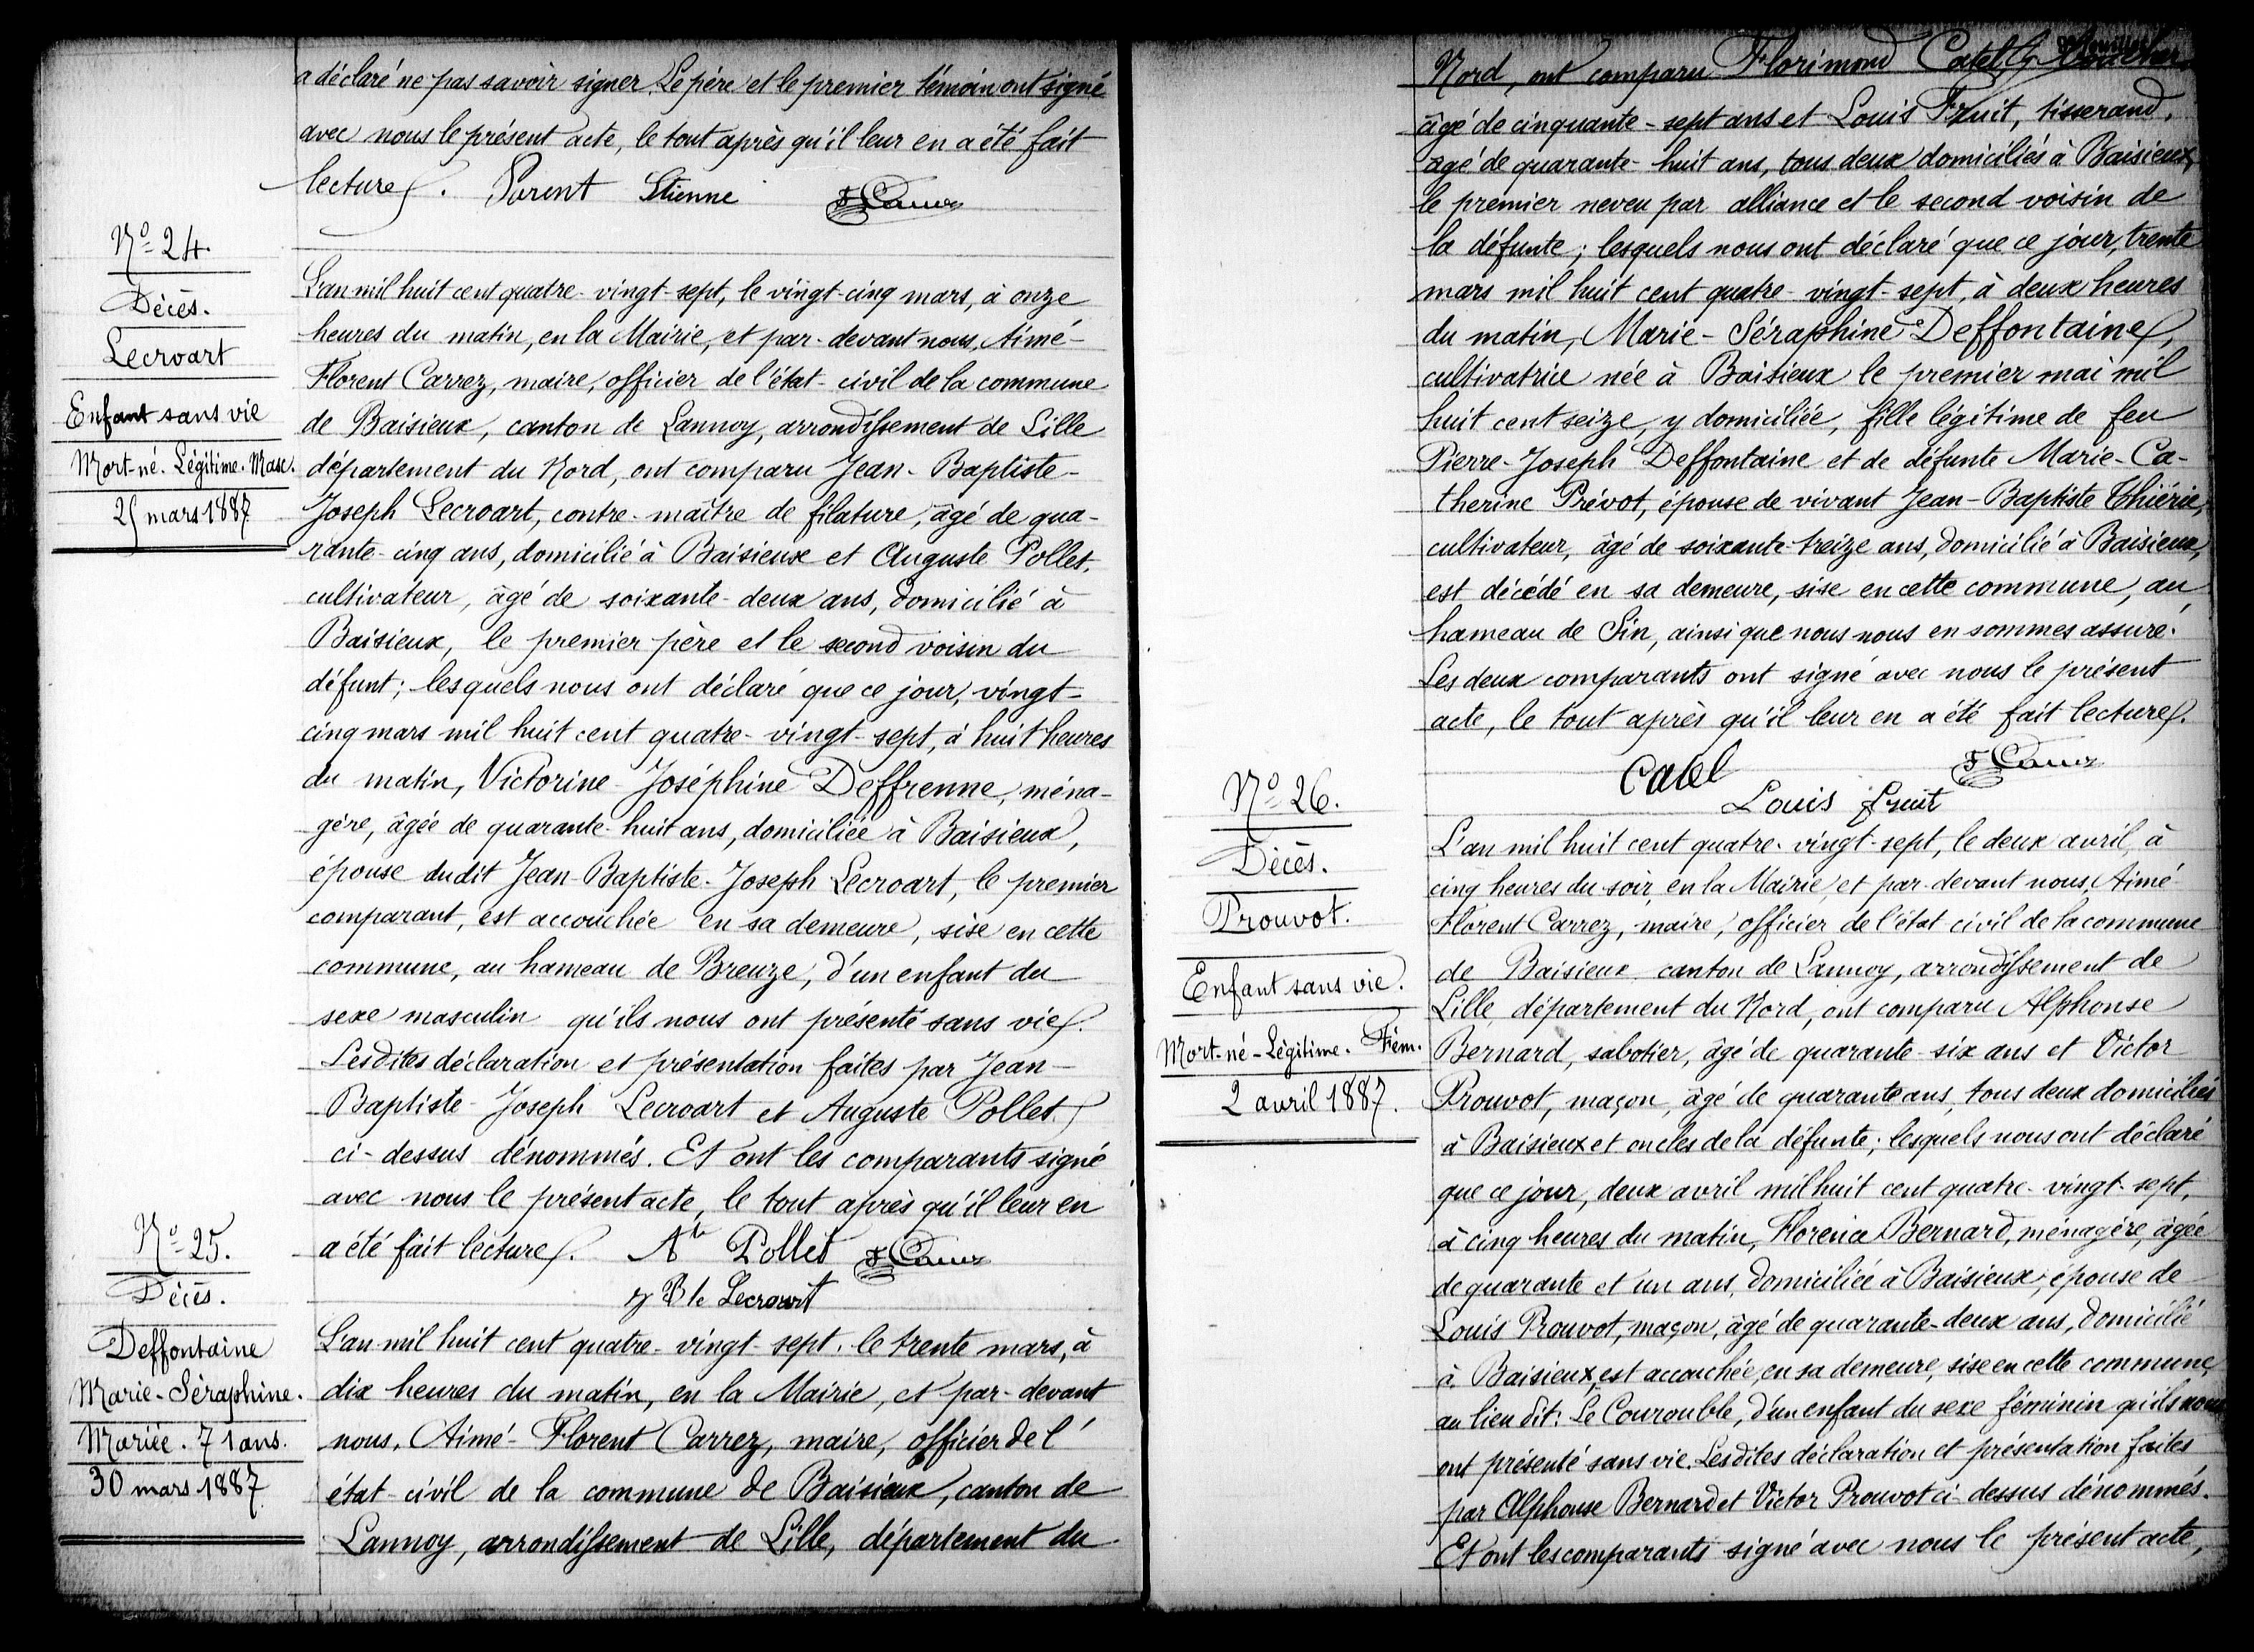 a déclaré ne pas savoir signer. Le père et le premier témoin ont signé
avec nous le présent acte, le tout après qu'il leur en a été fait
lecture. Parent Etienne F Carrez
Nº 24.
Décès.
Lecroart
Enfant sans vie
Mort-né. Légitime. Masc.
25 mars 1887
L'an mil huit cent quatre-vingt-sept, le vingt-cinq mars, à onze
heures du matin, en la Mairie, et par-devant nous, Aimé-
Florent Carrez, maire, officier de l'état-civil de la commune
de Baisieux, canton de Lannoy, arrondissement de Lille
département du Nord, ont comparu Jean-Baptiste-
Joseph Lecroart, contre-maître de filature, âgé de qua-
rante-cinq ans, domicilié à Baisieux et Auguste Pollet,
cultivateur, âgé de soixante-deux ans, domicilié à
Baisieux, le premier père et le second voisin du
défunt; lesquels nous ont déclaré que ce jour, vingt-
cinq mars mil huit cent quatre-vingt-sept, à huit heures
du matin, Victorine-Joséphine Deffrenne, ména-
gère, âgée de quarante-huit ans, domiciliée à Baisieux,
épouse dudit Jean-Baptiste-Joseph Lecroart, le premier
comparant, est accouchée en sa demeure, sise en cette
commune, au hameau de Breuze, d'un enfant du
sexe masculin qu'ils nous ont présenté sans vie.
Lesdites déclaration et présentation faites par Jean-
Baptiste-Joseph Lecroart et Auguste Pollet
ci-dessus dénommés. Et ont les comparants signé
avec nous le présent acte, le tout après qu'il leur en
a été fait lecture. Ate Pollet F Carrez
J Bte Lecroart
Nº 25.
Décès.
Deffontaine
Marie-Séraphine.
Mariée. 71 ans.
30 mars 1887
L'an mil huit cent quatre-vingt-sept, le trente mars, à
dix heures du matin, en la Mairie, et par-devant
nous, Aimé-Florent Carrez, maire, officier de l'
état-civil de la commune de Baisieux, canton de
Lannoy, arrondissement de Lille, département du
Nord, ont comparu Florimond Catel
âgé de cinquante-sept ans et Louis Fruit, tisserand,
âgé de quarante-huit ans, tous deux domiciliés à Baisieux,
le premier neveu par alliance et le second voisin de
la défunte; lesquels nous ont déclaré que ce jour, trente
mars mil huit cent quatre-vingt-sept, à deux heures
du matin, Marie-Séraphine Deffontaine,
cultivatrice née à Baisieux le premier mai mil
huit cent seize, y domiciliée, fille légitime de feu
Pierre-Joseph Deffontaine et de défunte Marie-Ca-
therine Prévot, épouse de vivant Jean-Baptiste Thiérie,
cultivateur, âgé de soixante-treize ans, domicilié à Baisieux,
est décédé en sa demeure, sise en cette commune, au
hameau de Sin, ainsi que nous nous en sommes assuré.
Les deux comparants ont signé avec nous le présent
acte, le tout après qu'il leur en a été fait lecture.
Catel F Carrez
Louis Fruit
Nº 26.
Décès.
Prouvot.
Enfant sans vie.
Mort-né-Légitime. Fém.
2 avril 1887.
L'an mil huit cent quatre-vingt-sept, le deux avril, à
cinq heures du soir, en la Mairie, et par-devant nous, Aimé-
Florent Carrez, maire, officier de l'état civil de la commune
de Baisieux, canton de Lannoy, arrondissement de
Lille, département du Nord, ont comparu Alphonse
Bernard, sabotier, âgé de quarante-six ans et Victor
Prouvot, maçon, âgé de quarante ans, tous deux domiciliés
à Baisieux et oncles de la défunte; lesquels nous ont déclaré
que ce jour, deux avril mil huit cent quatre-vingt-sept,
à cinq heures du matin, Florence Bernard, ménagère, âgée
de quarante et un ans, domiciliée à Baisieux, épouse de
Louis Prouvot, maçon, âgé de quarante-deux ans, domicilié
à Baisieux, est accouchée, en sa demeure, sise en cette commune,
au lieu dit: Le Courouble, d'un enfant du sexe féminin qu'ils nous
ont présenté sans vie. Lesdites déclaration et présentation faites
par Alphonse Bernard et Victor Prouvot ci-dessus dénommés.
Et ont les comparants signé avec nous le présent acte,